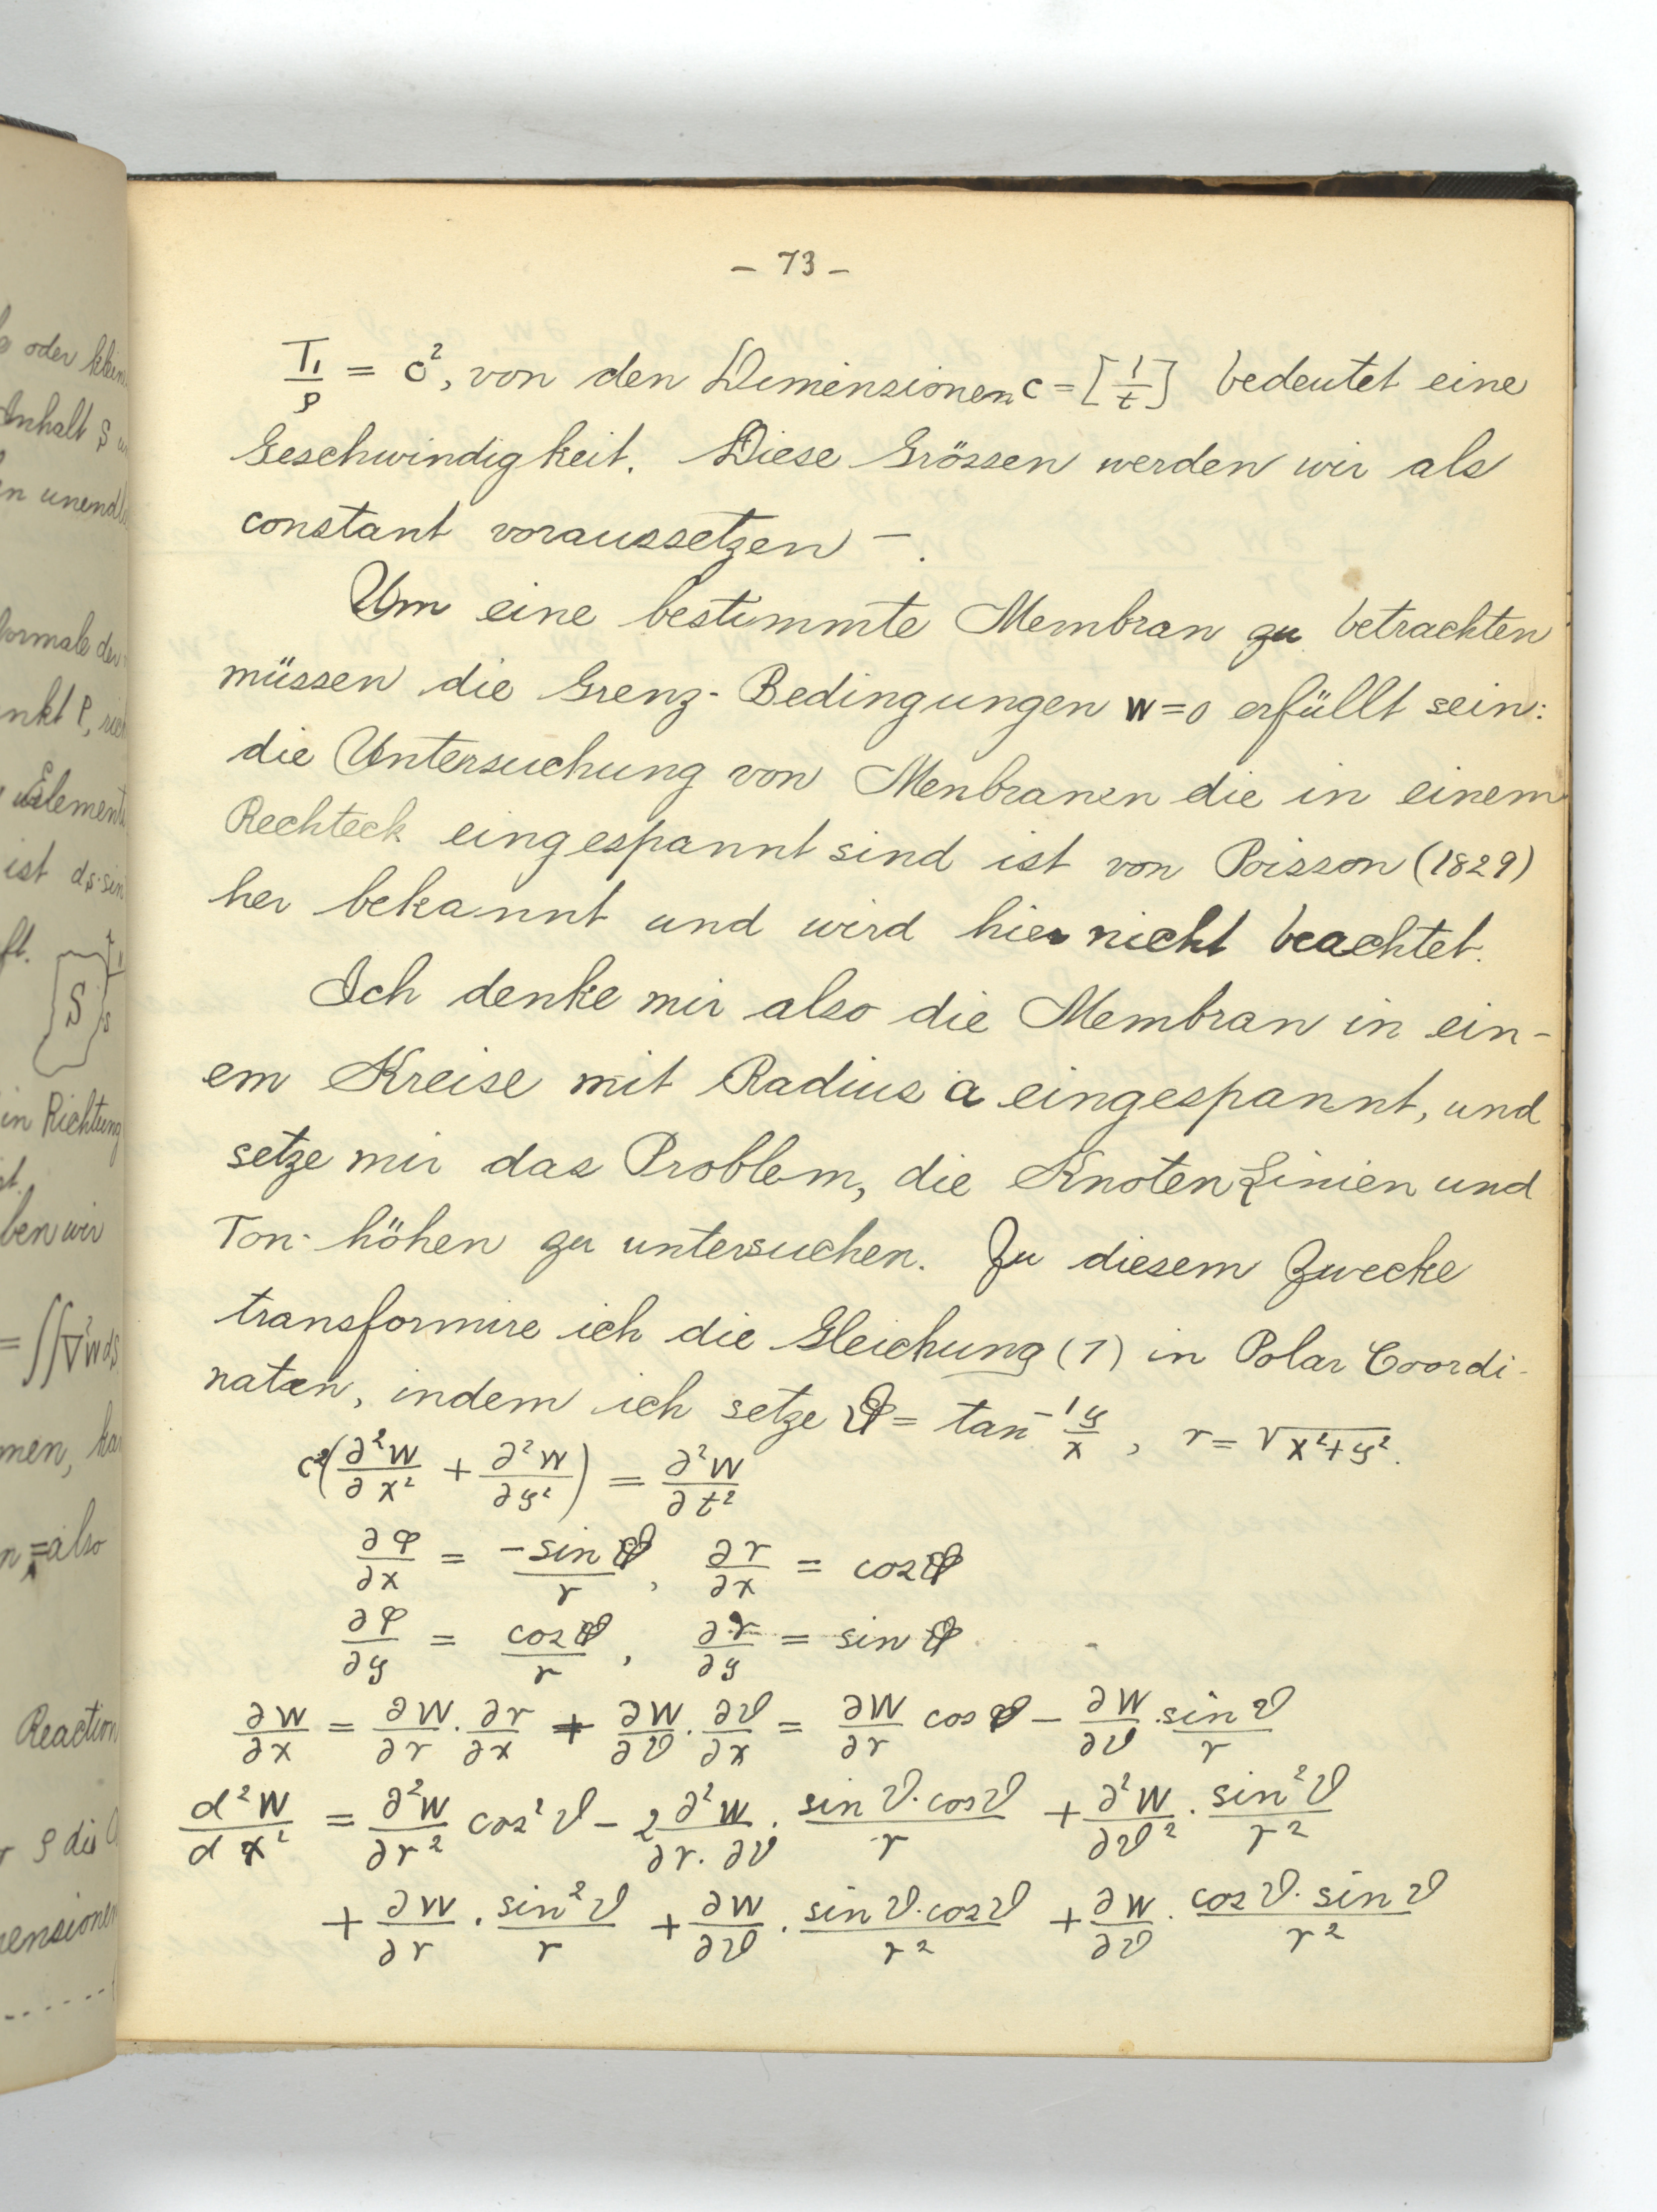 e oder klein
Inhalt S u
en unendl
Normale der
nkt P, rich
Element
ist ds·sin
ft.
S
s
in Richtung
st.
ben wir
= ∫∫∇²w dS
men, ka
n = also
Reaction
r ρ die
mensionen
- 73 -
T₁/ρ = c², von den Dimensionen c = [1/t] bedeutet eine
Geschwindigkeit. Diese Grössen werden wir als
constant voraussetzen -.
Um eine bestimmte Membran zu betrachten
müssen die Grenz-Bedingungen w=0 erfüllt sein:
die Untersuchung von Menbranen die in einem
Rechteck eingespannt sind ist von Poisson (1829)
her bekannt und wird hier nicht beachtet.
Ich denke mir also die Membran in ein-
em Kreise mit Radius a eingespannt, und
setze mir das Problem, die Knoten Linien und
Ton-höhen zu untersuchen. Zu diesem Zwecke
transformire ich die Gleichung (1) in Polar Coordi-
naten, indem ich setze ϑ = tan⁻¹ y/x , r = √x²+y².
c²(∂²w/∂x² + ∂²w/∂y²) = ∂²w/∂t²
∂φ/∂x = -sin ϑ/r , ∂r/∂x = cos ϑ
∂φ/∂y = cos ϑ/r , ∂r/∂y = sin ϑ
∂w/∂x = ∂w/∂r · ∂r/∂x + ∂w/∂ϑ · ∂ϑ/∂x = ∂w/∂r cos ϑ - ∂w/∂ϑ · sin ϑ/r
d²w/dx² = ∂²w/∂r² cos²ϑ - 2 ∂²w/∂r·∂ϑ · sin ϑ·cos ϑ/r + ∂²w/∂ϑ² · sin²ϑ/r²
+ ∂w/∂r · sin²ϑ/r + ∂w/∂ϑ · sin ϑ·cos ϑ/r² + ∂w/∂ϑ · cos ϑ·sin ϑ/r²